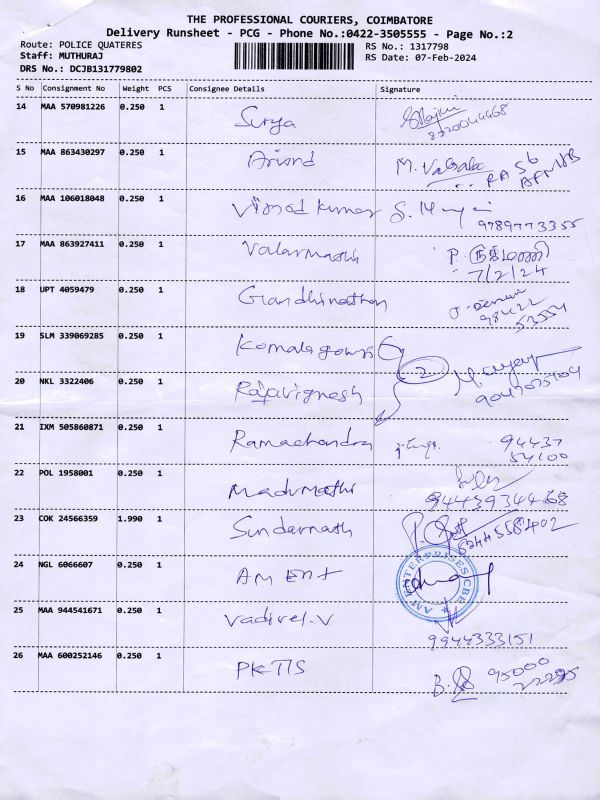 THE PROFESSIONAL COURIERS, COIMBATORE
Delivery Runsheet - PCG - Phone No.:0422-3505555 - Page No.:2
Route: POLICE QUATERES
RS No.: 1317798
Staff: MUTHURAJ
RS Date: 07-Feb-2024
DRS No.: DCJB131779802
S No Consignment No Weight PCS Consignee Details Signature
14 MAA 570981226 0.250 1 Surya
15 MAA 863430297 0.250 1 Arvind M. Valsala
16 MAA 106018048 0.250 1 Vinod Kumar 9789773355
17 MAA 863927411 0.250 1 Valarmathi P.
7/2/24
18 UPT 4059479 0.250 1 Gandhinathan
98422
53554
19 SLM 339069285 0.250 1 Komalagowri
2
20 NKL 3322406 0.250 1 Rajavignesh
21 IXM 505860871 0.250 1 Ramachandra 94437
54100
22 POL 1958001 0.250 1 Madhumathi
9443934468
23 COK 24566359 1.990 1 Sundarnath
24 NGL 6066607 0.250 1 AM ENT
AM ENTERPRISES CBE
25 MAA 944541671 0.250 1 Vadivel.V
9944333151
26 MAA 600252146 0.250 1 PKTIS B. 95000
22295